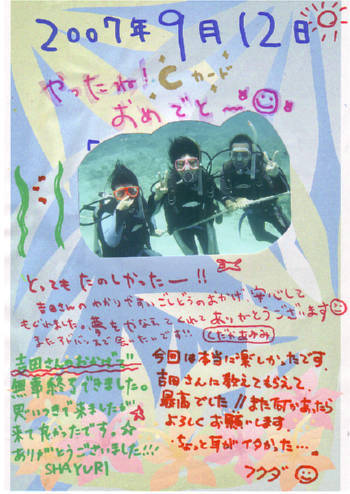 2007年9月12日
やったね！Cカード
おめでとー
とってもたのしかったー!!
吉田さんのわかりやすいごしどうのおかげで安心して
もぐれました。夢をかなえてくれてありがとうございます
またアドバンスで会いたいです!!
吉田さんのおかげで
無事終了できました。
思いつきで来ましたが
来て良かったです。☆
ありがとうございました!!!
SHAYURI
今回は本当に楽しかったです。
吉田さんに教えてもらえて、
最高でした!!また何かあったら
よろしくお願いします。
ちょっと耳がイタかった…
フクダ